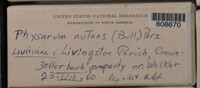 UNITED STATES NATIONAL HERBARIUM
808670
Physarum nutans (Bull) Pers.
Louisiana: Livingston Parish, Crown-
Zellerbach property nr. Walker
23 60